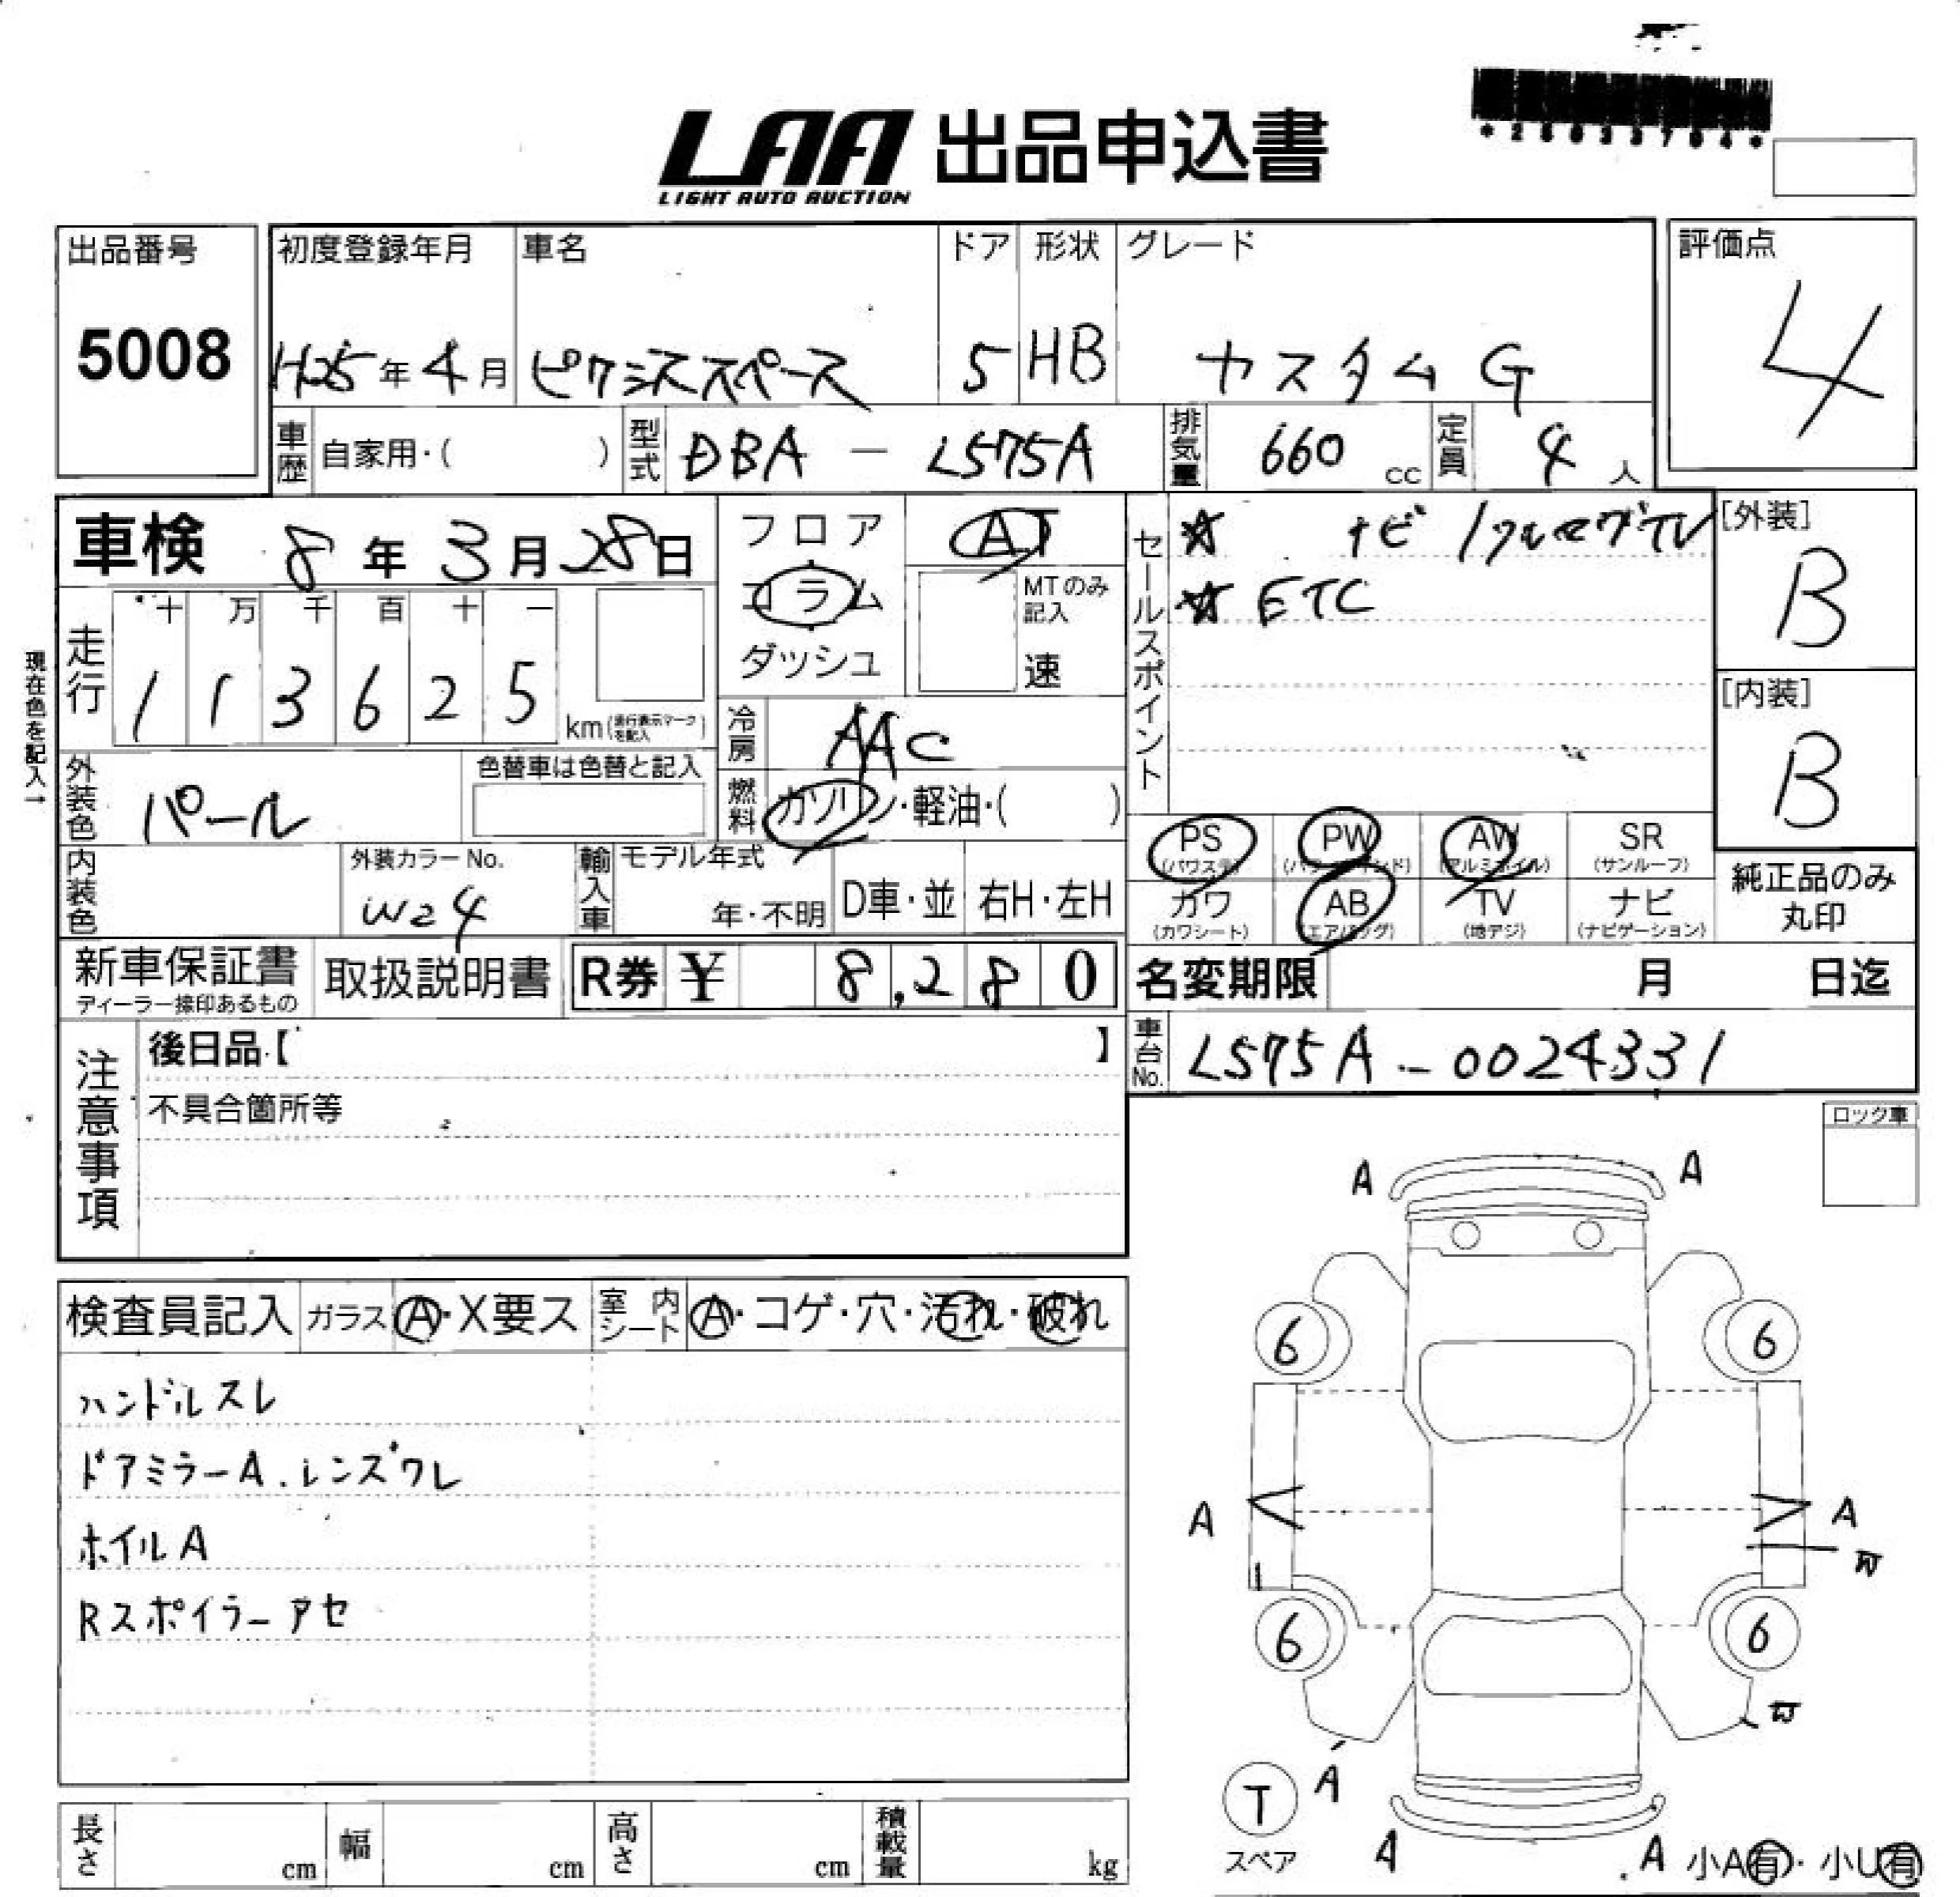 *2803704*
LAA 出品申込書
LIGHT AUTO AUCTION
出品番号 初度登録年月 車名 ドア 形状 グレード 評価点
5008 H25年4月 ピクシススペース 5 HB カスタムG 4
車歴 自家用・( ) 型式 DBA - L575A 排気量 660 cc 定員 4 人
車検 8年3月28日 フロア AT セールスポイント ☆ ナビ/フルセグTV [外装]
コラム MTのみ記入 ☆ ETC B
走行 十 万 千 百 十 一 ダッシュ 速
1 1 3 6 2 5 km(走行表示マークを記入) [内装]
現在色を記入→
冷房 AAC B
外装色 パール 色替車は色替と記入 燃料 ガソリン・軽油・( )
PS (パワステ) PW (パワーウインド) AW (アルミホイル) SR (サンルーフ)
内装色 外装カラーNo. W24 輸入車 モデル年式 年・不明 D車・並 右H・左H
カワ (カワシート) AB (エアバッグ) TV (地デジ) ナビ (ナビゲーション) 純正品のみ丸印
新車保証書 取扱説明書 R券 ¥ 8,280 名変期限 月 日迄
ディーラー捺印あるもの
注意事項 後日品【 】 車台No. L575A-0024331
不具合箇所等
ロック車
A A
検査員記入 ガラス A・X要ス 室内シート A・コゲ・穴・汚れ・破れ
6 6
ハンドルスレ
ドアミラーA.レンズワレ
A A
W
ホイルA
Rスポイラーアセ
6 6
W
A
T
スペア
A A 小A有・小U有
長さ cm 幅 cm 高さ cm 積載量 kg